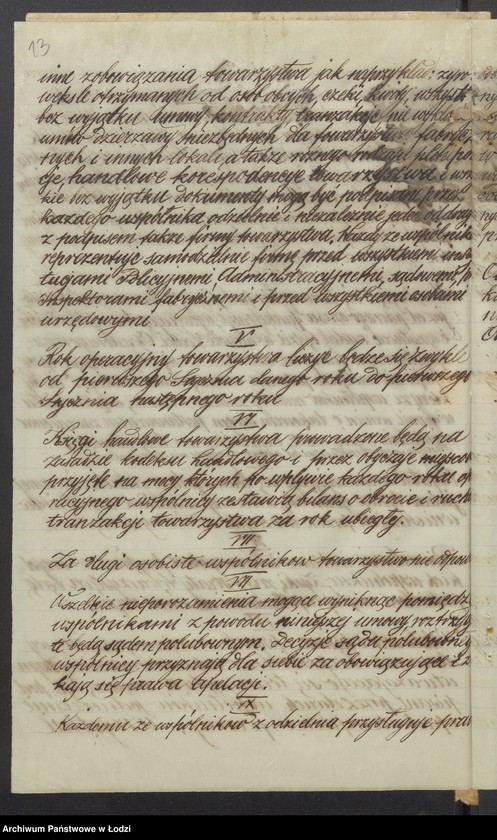 13
inne zobowiązania towarzystwa jak naprzykład: żyro
weksle otrzymanych od osób obcych, czeki, kwoty, wszystk
bez wyjątku umowy, kontrakty, tranzakcje nie
umów dzierżawy niezbędnych dla towarzystwa fabrycz
nych i innych lokali, a także różnego rodzaju
cje, handlowe korespondencje towarzystwa i wsz
kie bez wyjątku dokumenty mogą być podpisane przez
każdego wspólnika oddzielnie i niezależnie jeden od drug
z podpisem także firmy towarzystwa. Każdy ze wspólnik
reprezentuje samodzielnie firmę przed wszystkiemi insty
tucjami Policyjnemi, Administracyjnemi, sądowemi,
Inspektorami fabrycznemi i przed wszystkiemi osobami
urzędowymi
V
Rok operacyjny towarzystwa liczyć będzie się zwykle
od pierwszego Stycznia danego roku do pierwszego
Stycznia następnego roku
VI
Księgi handlowe towarzystwa prowadzone będą na
zasadzie kodeksu handlowego i przez obyczaje miejscow
przyjęte na mocy których po upływie każdego roku op
racyjnego wspólnicy zestawią bilans o obrocie i ruchu
tranzakcji towarzystwa za rok ubiegły.
VII
Za długi osobiste wspólników towarzystwo nie odpow
Wszelkie nieporozumienia mogące wyniknąć pomiędz
wspólnikami z powodu niniejszej umowy roztrzyg
te będą sądem polubownym. Decyzje sądu polubowneg
wspólnicy przyznają dla siebie za obowiązujące i z
kają się prawa apelacji.
IX
Każdemu ze wspólników z oddzielna przysługuje praw
Archiwum Państwowe w Łodzi